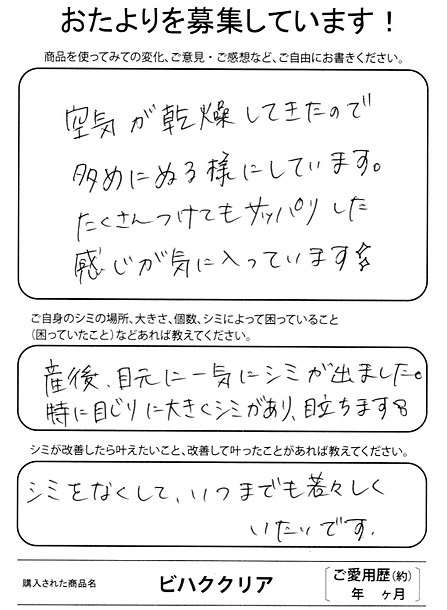 おたよりを募集しています！
商品を使ってみての変化、ご意見・ご感想など、ご自由にお書きください。
空気が乾燥してきたので
多めにぬる様にしています。
たくさんつけてもサッパリした
感じが気に入っています☆
ご自身のシミの場所、大きさ、個数、シミによって困っていること
（困っていたこと）などあれば教えてください。
産後、目元に一気にシミが出ました。
特に目じりに大きくシミがあり、目立ちます
シミが改善したら叶えたいこと、改善して叶ったことがあれば教えてください。
シミをなくして、いつまでも若々しく
いたいです.
購入された商品名
ビハククリア
ご愛用歴（約）
年　ヶ月